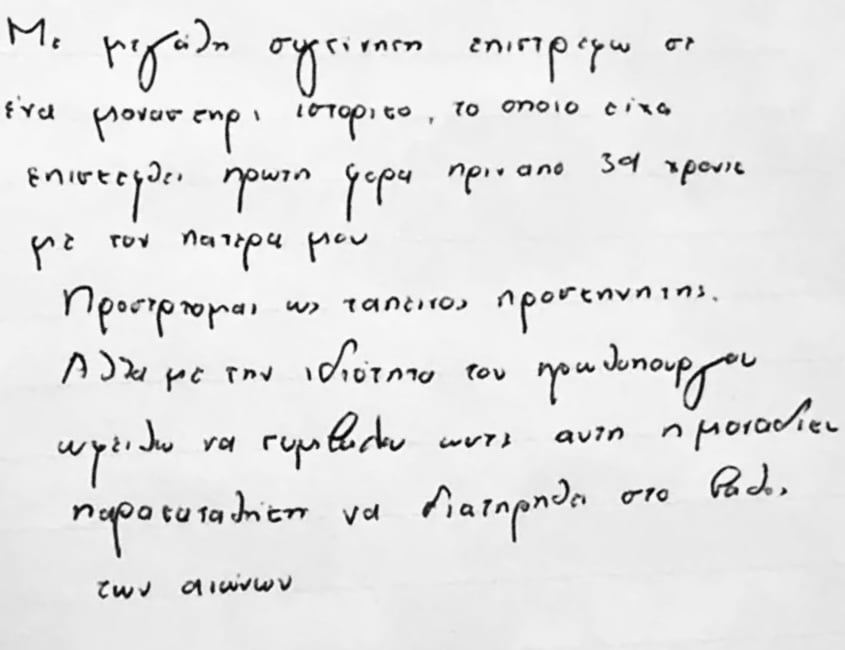 Με μεγάλη συγκίνηση επιστρεφω σε
ένα μοναστηρι ιστορικο, το οποιο ειχα
επισκεφθει πρωτη φορα πριν απο 39 χρονια
με τον πατερα μου
Προσερχομαι ως ταπεινος προσκηνητης.
Αλλα με την ιδιότητα του πρωθυπουργου
ωφειλω να συμβαλω ωστε αυτη η μοναδικη
παρακαταθηκη να διατηρηθει στο βαθος
των αιώνων